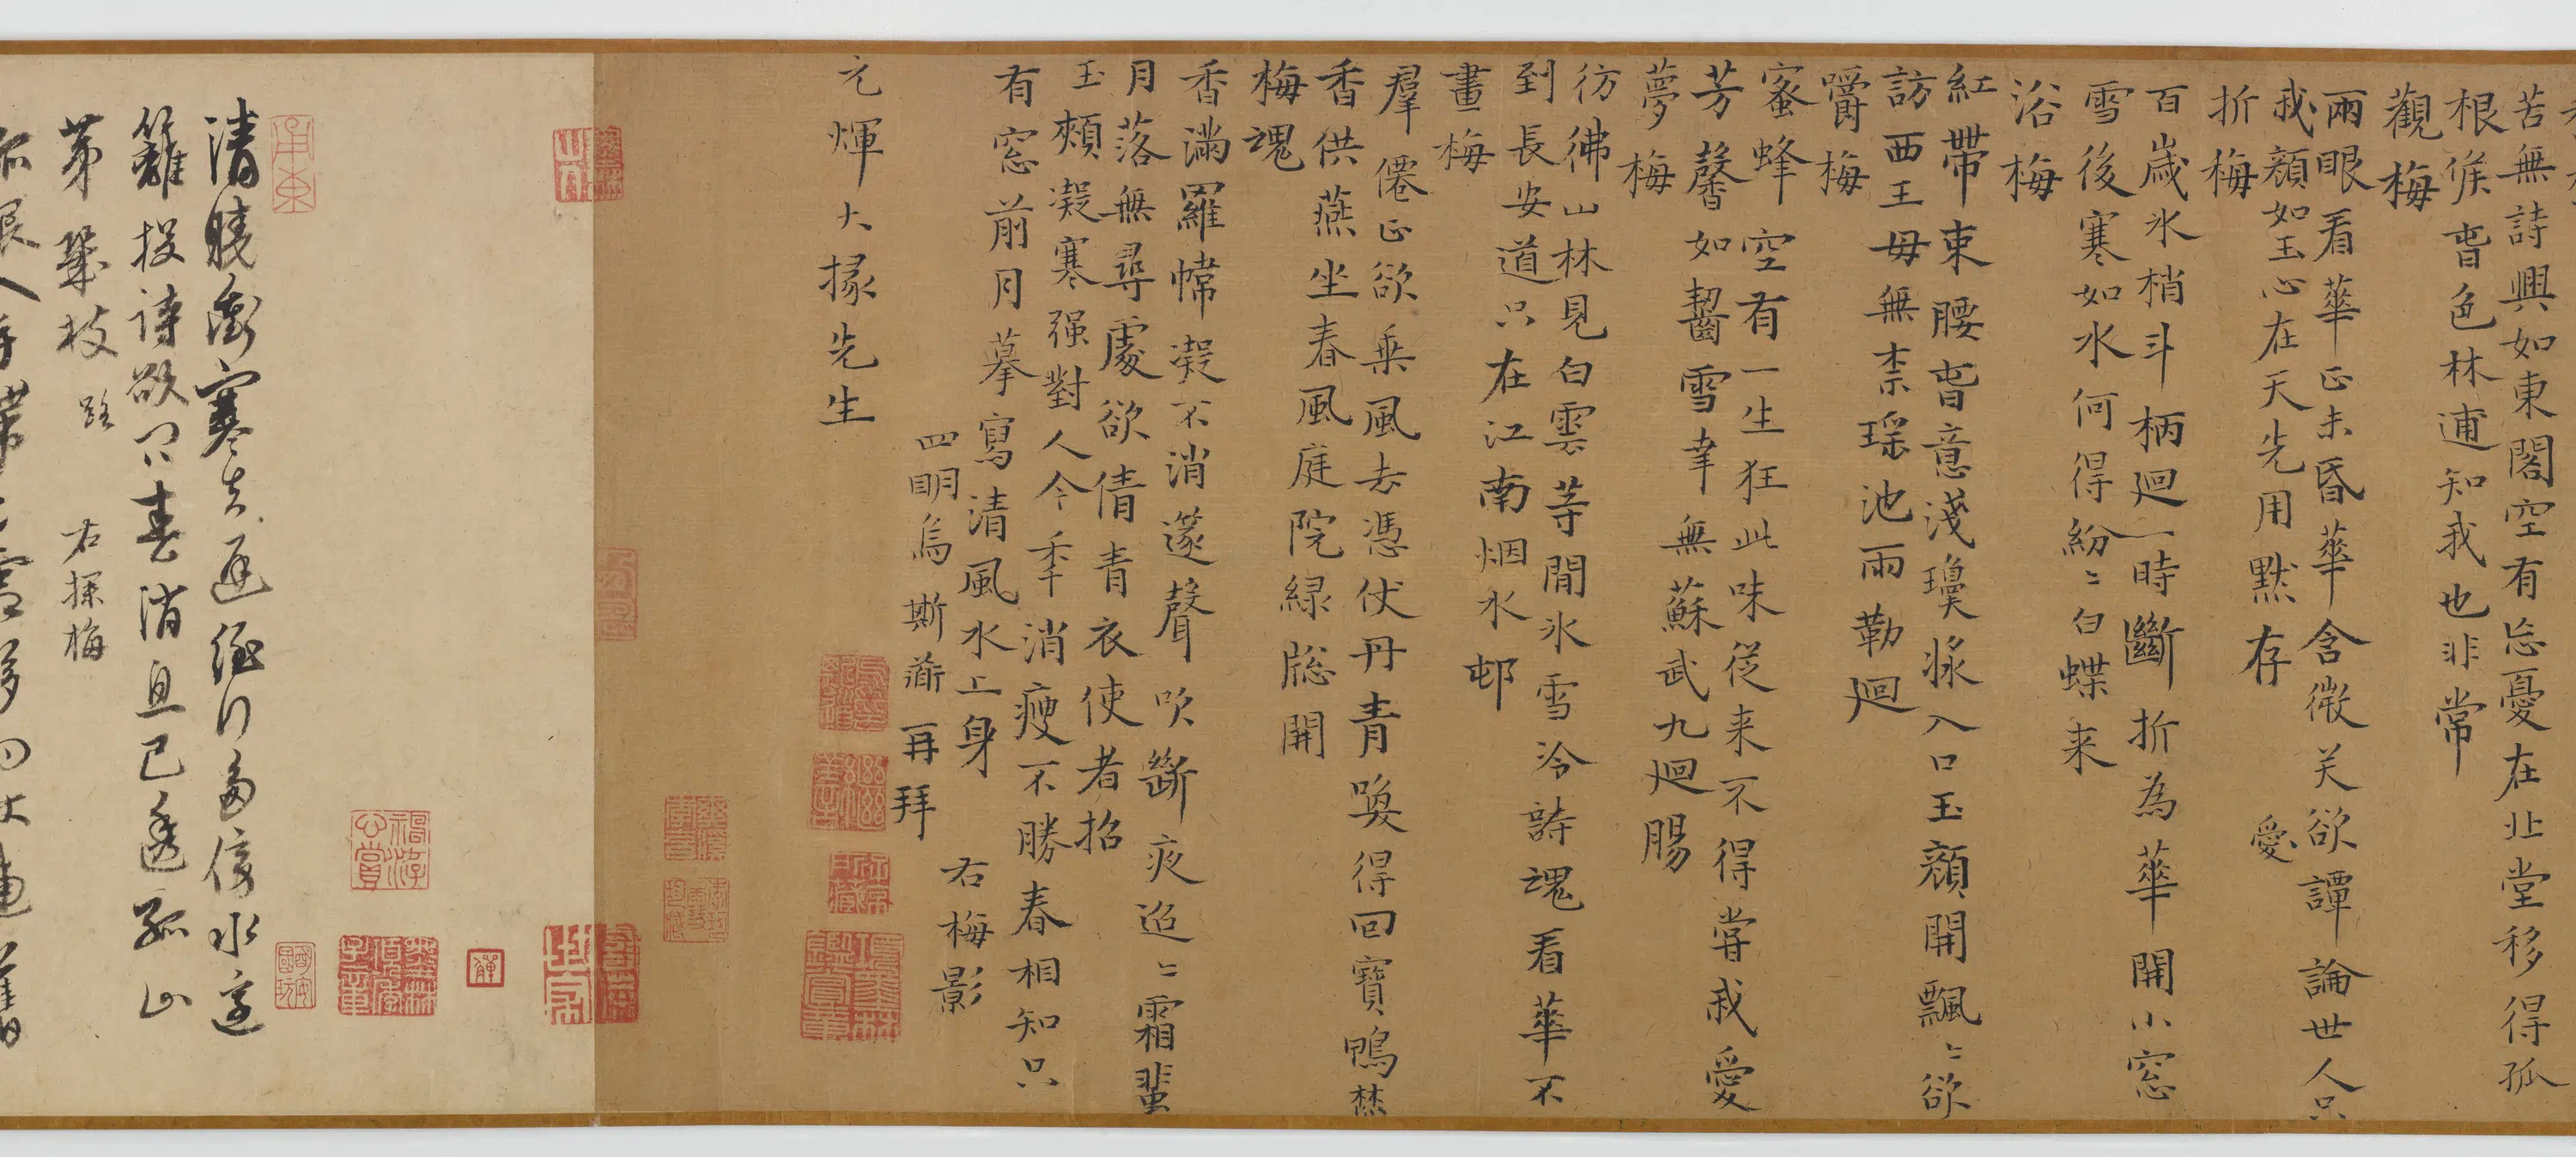 苦無詩興如東閣空有忘憂在北堂移得孤
根候香色林逋知我也非常
觀梅
兩眼看華正未昏華含微笑欲譚論世人只
我顏如玉心在天先用默存
愛
折梅
百歲冰梢斗柄迴一時斷折為華開小窓
雪後寒如水何得紛〻白蝶来
浴梅
紅帶束腰香意淺瓊漿入口玉顏開飄〻欲
訪西王母無柰瑶池兩勒迴
嚼梅
蜜蜂空有一生狂此味從来不得嘗我愛
芳馨如齧雪幸無蘇武九迴腸
夢梅
彷彿山林見白雲等閒冰雪冷詩魂看華不
到長安道只在江南烟水邨
畫梅
羣僊正欲乗風去憑仗丹青喚得回寶鴨焚
香供燕坐春風庭院緑牕開
梅魂
香滿羅幃凝不消邃聲吹斷夜迢〻霜蜚
月落無尋處欲倩青衣使者招
玉頰凝寒强對人今年消瘦不勝春相知只
有窓前月摹寫清風水上身 右梅影
四明烏斯道再拜
元煇大掾先生
清曉衝寒去 逕行多傍水邊
籬投詩欲問春消息已透孤山
第幾枝 右探梅